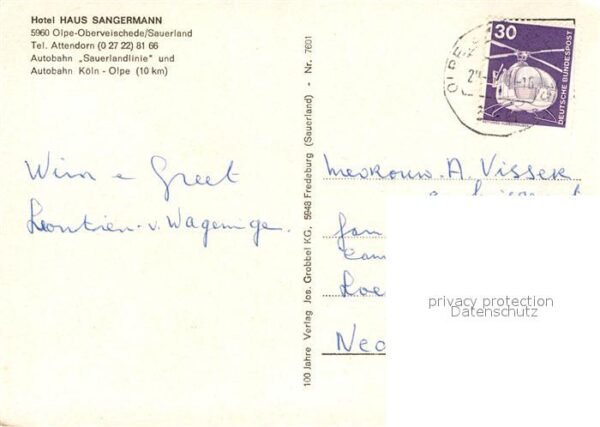 Hotel HAUS SANGERMANN
5960 Olpe-Oberveischede/Sauerland
Tel. Attendorn (0 27 22) 81 66
Autobahn „Sauerlandlinie" und
Autobahn Köln - Olpe (10 km)
30
DEUTSCHE BUNDESPOST
OLPE
100 Jahre Verlag Jos. Grobbel KG, 5948 Fredeburg (Sauerland) - Nr. 7601
Wim e Greet
Leontien v. Wagenige.
Mevrouw. A. Visser
privacy protection
Datenschutz